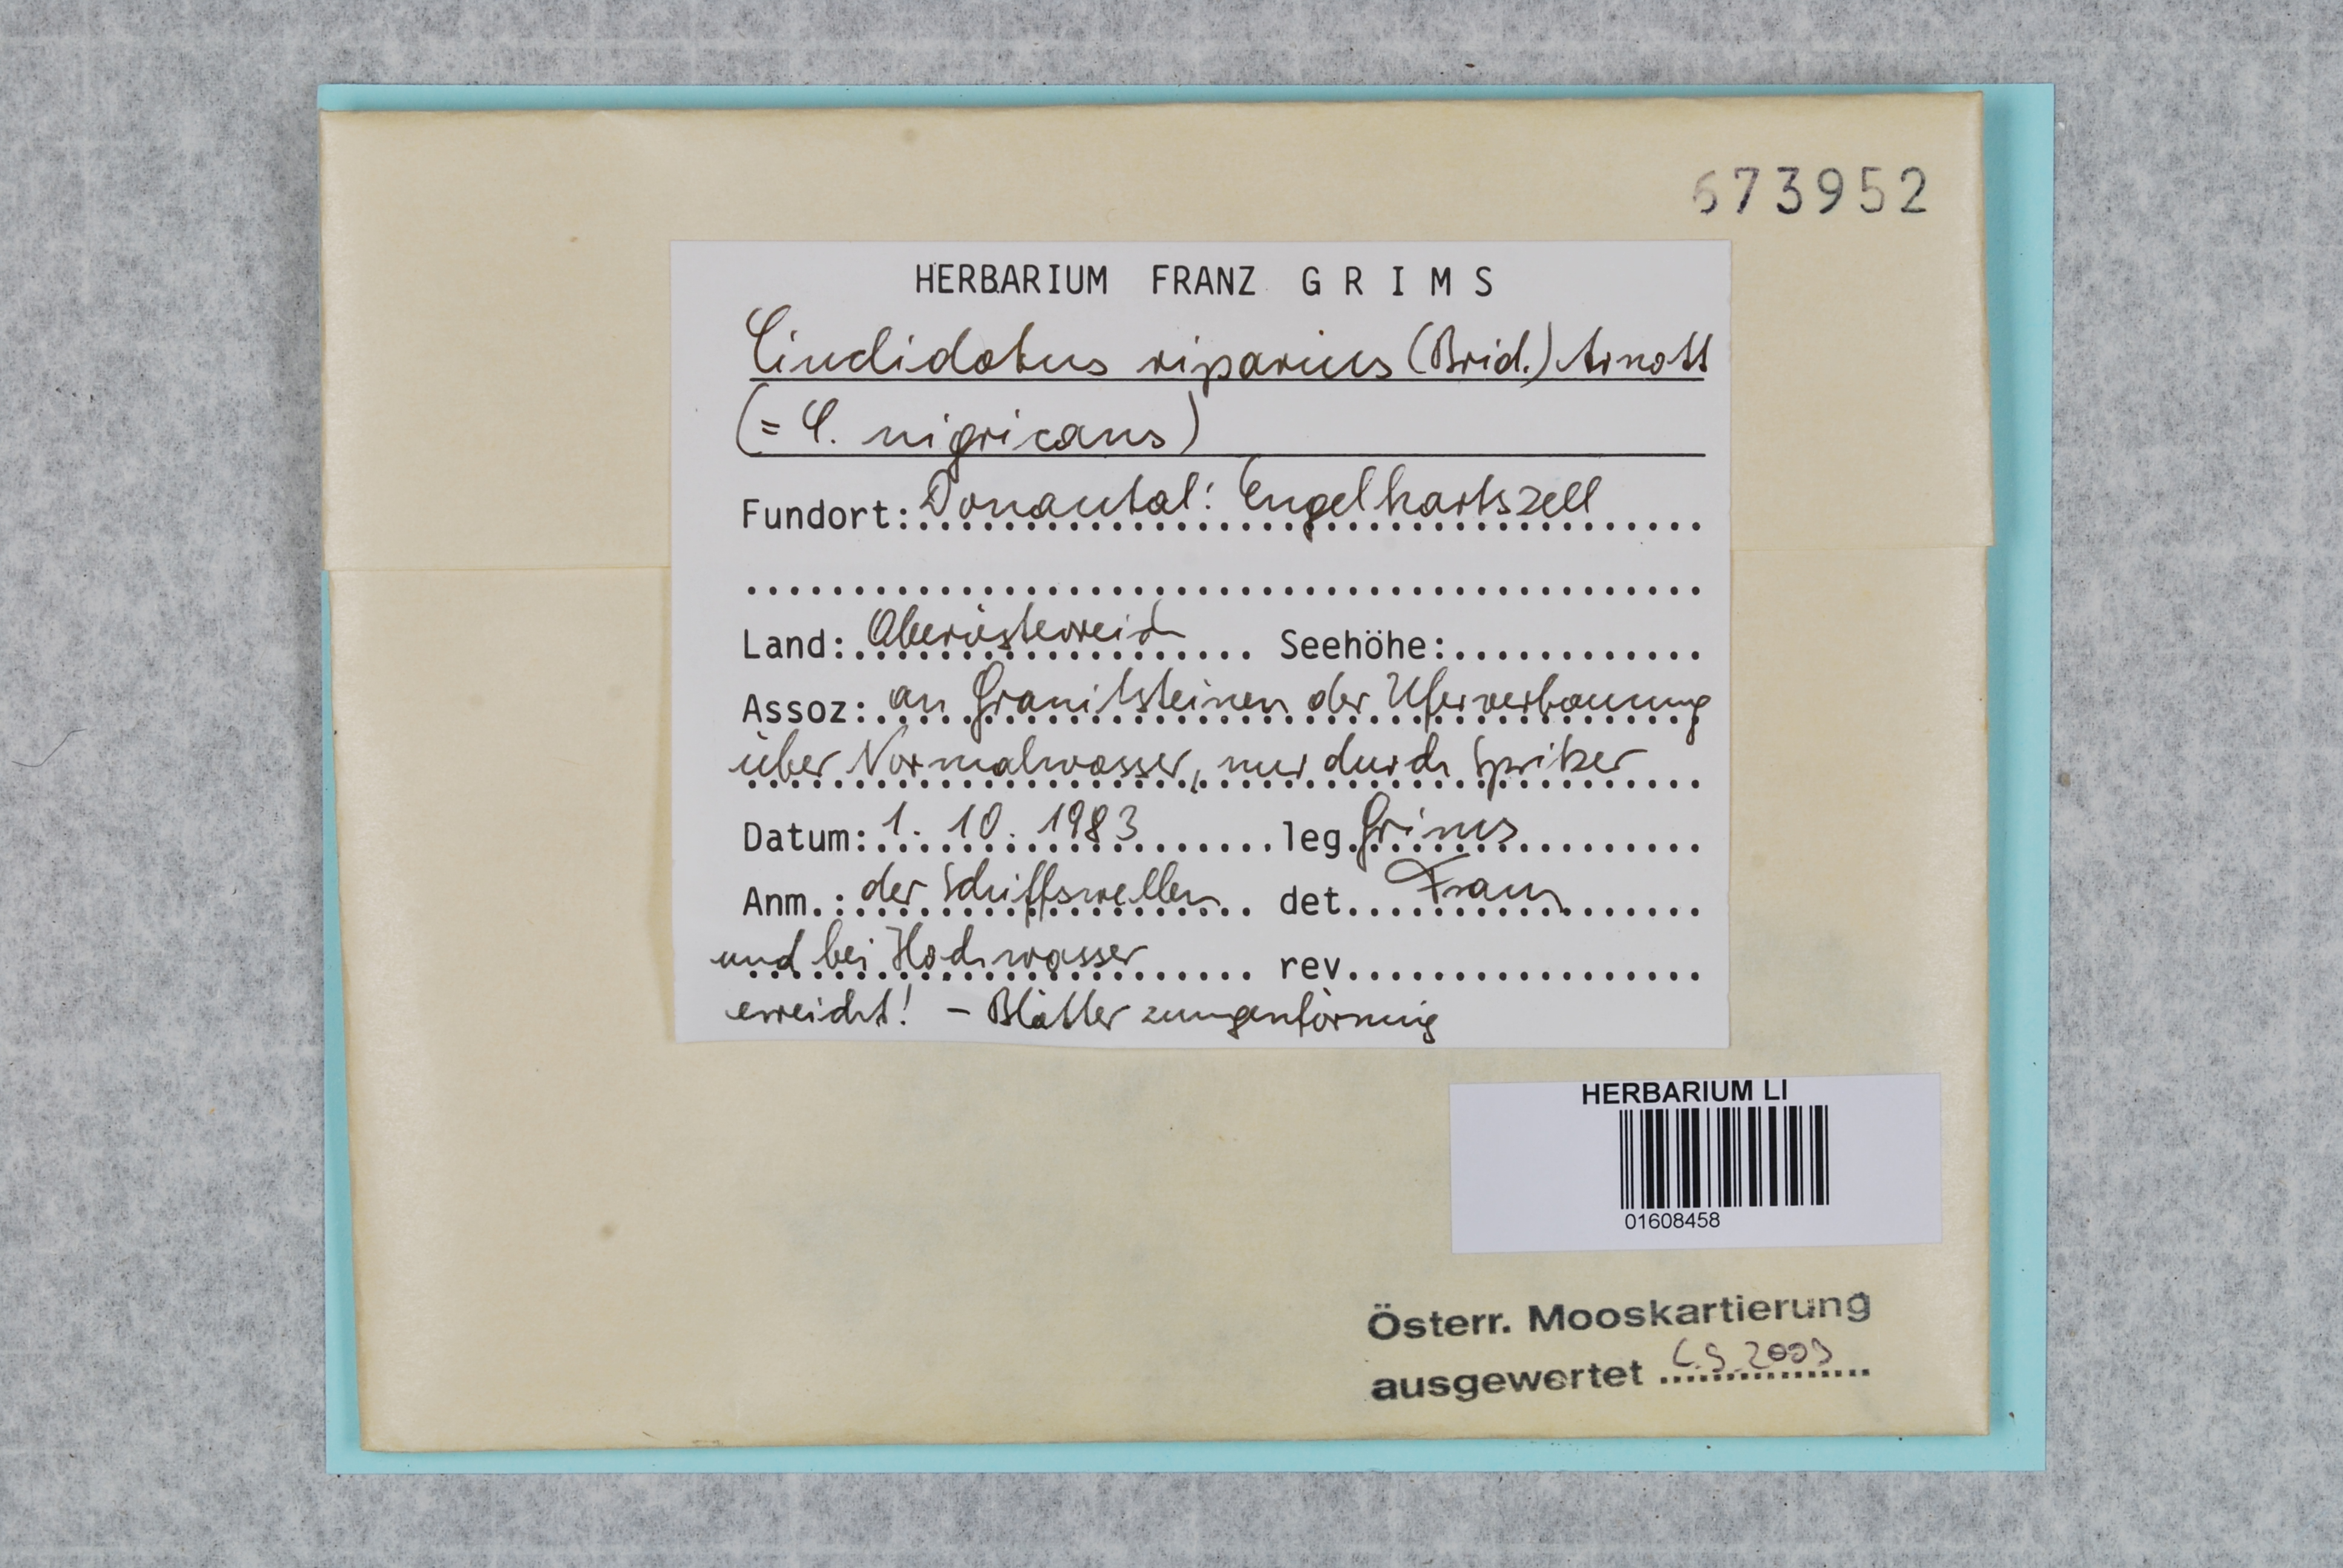 673952
HERBARIUM FRANZ GRIMS
Cinclidotus riparius (Brid.) Arnott
(= C. nigricans)
Fundort: Donautal: Engelhartszell
Land: Oberösterreich Seehöhe:
Assoz: an Granitsteinen der Uferverbauung
über Normalwasser, nur durch Spritzer
Datum: 1. 10. 1983 leg. Grims
Anm.: der Schiffswellen det. Franz
und bei Hochwasser rev.
erreicht! – Blätter zungenförmig
HERBARIUM LI
01608458
Österr. Mooskartierung
ausgewertet